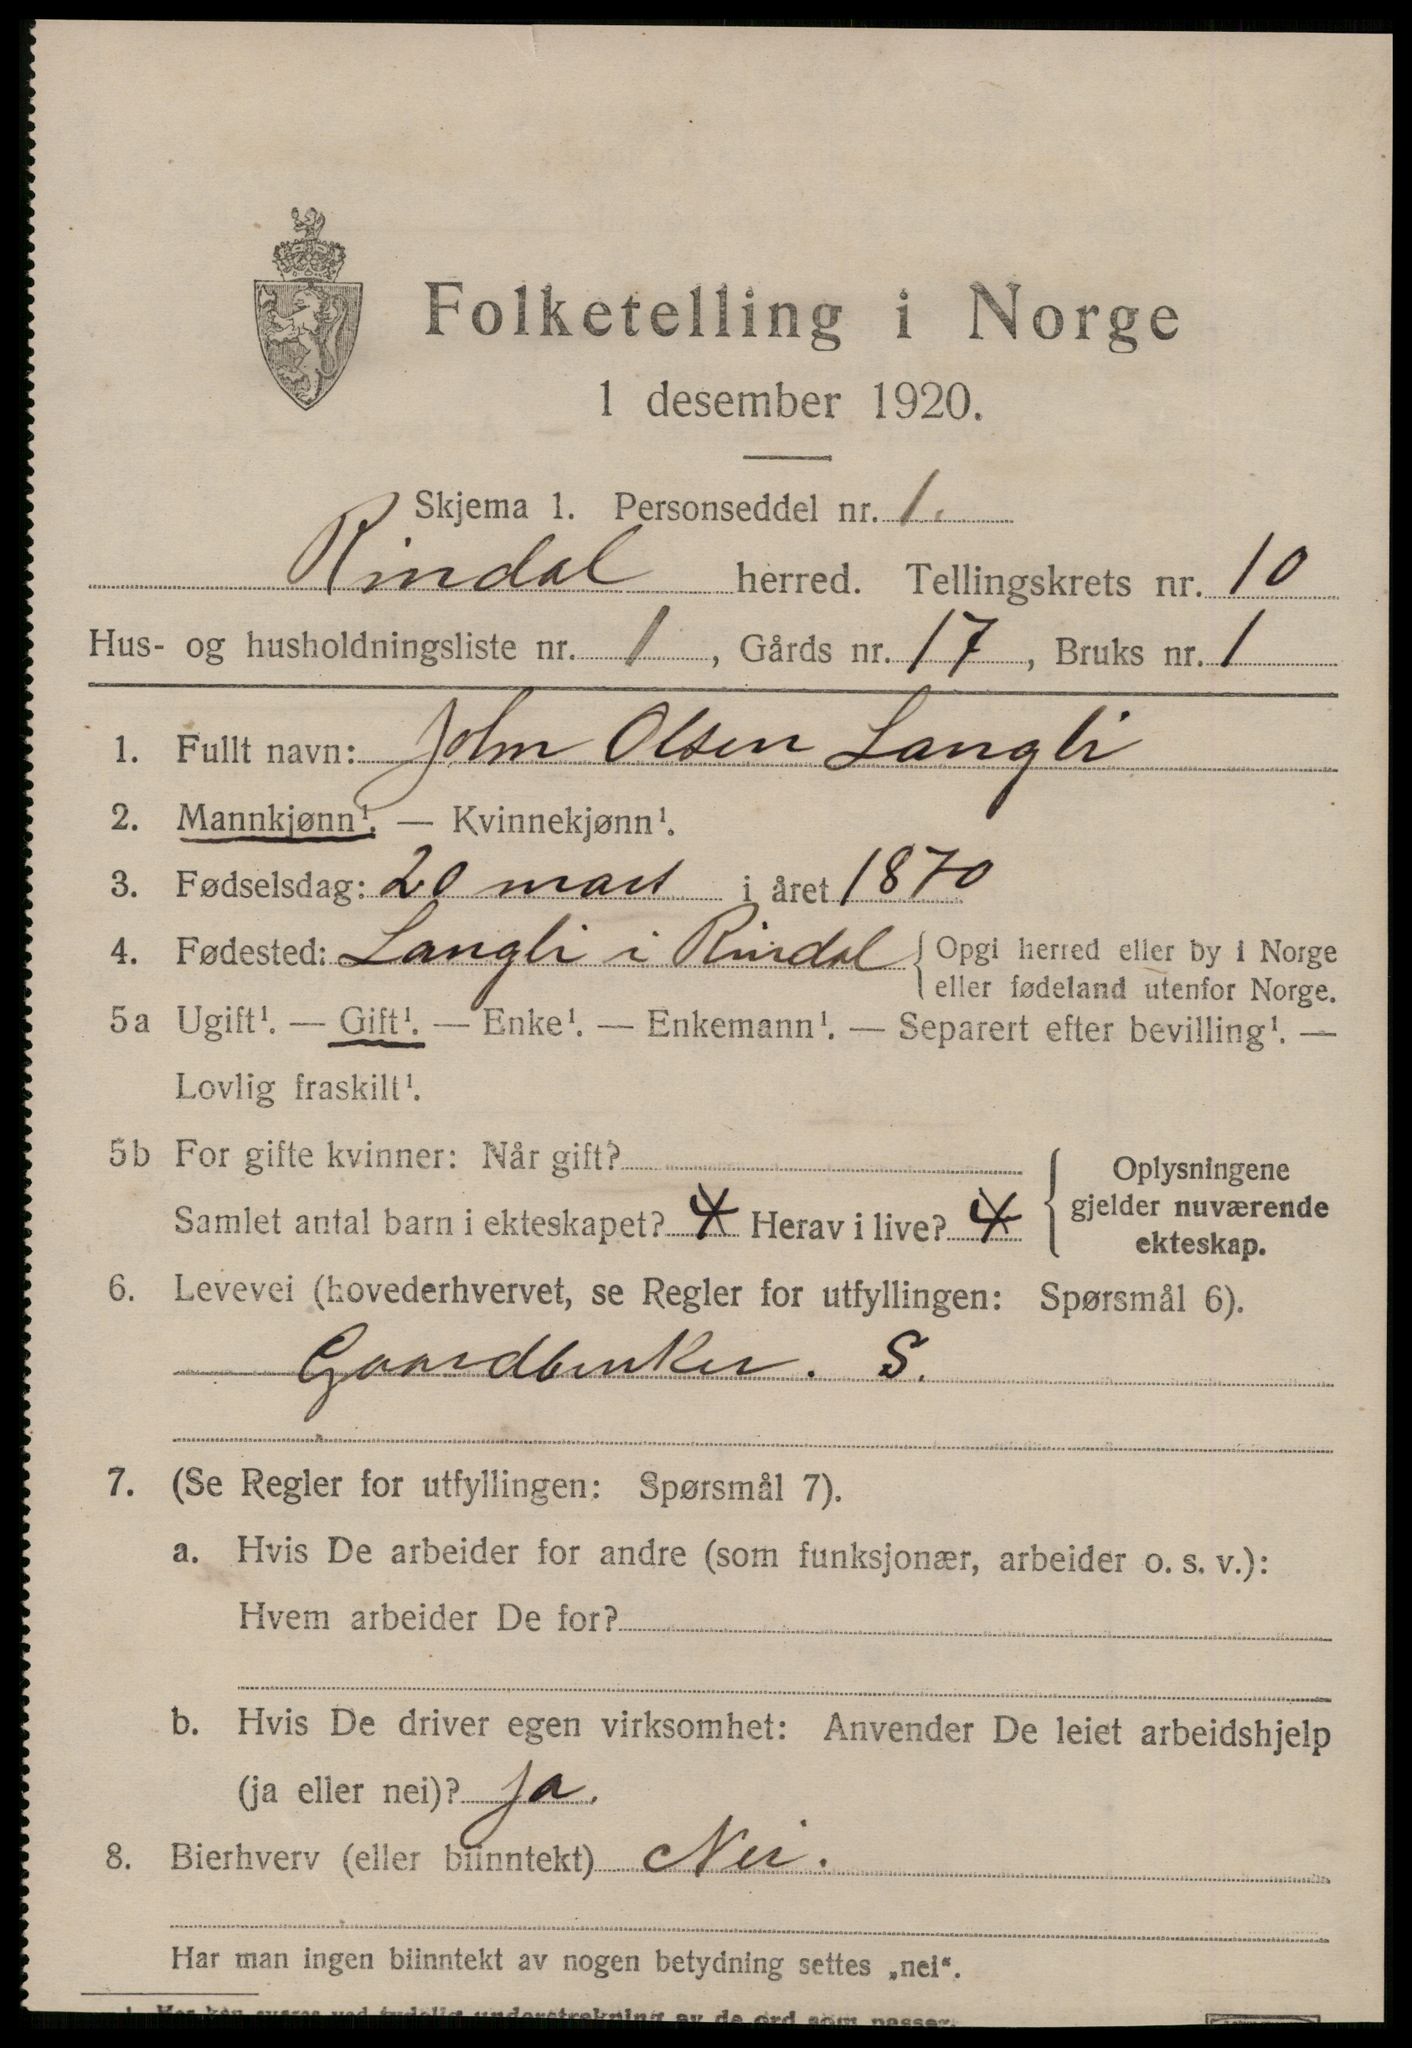 Folketelling i Norge
1 desember 1920.
Skjema 1. Personseddel nr. 1.
Rindal herred. Tellingskrets nr. 10
Hus- og husholdningsliste nr. 1, Gårds nr. 17, Bruks nr. 1
1. Fullt navn: John Olsen Langli
2. Mannkjønn¹. — Kvinnekjønn¹.
3. Fødselsdag: 20 mars i året 1870
4. Fødested: Langli i Rindal { Opgi herred eller by i Norge
eller fødeland utenfor Norge.
5a Ugift¹. — Gift¹. — Enke¹. — Enkemann¹. — Separert efter bevilling¹. —
Lovlig fraskilt¹.
5b For gifte kvinner: Når gift?
Samlet antal barn i ekteskapet? 4 Herav i live? 4
{ Oplysningene
gjelder nuværende
ekteskap.
6. Levevei (hovederhvervet, se Regler for utfyllingen: Spørsmål 6).
Gaardbruker. S.
7. (Se Regler for utfyllingen: Spørsmål 7).
a. Hvis De arbeider for andre (som funksjonær, arbeider o. s. v.):
Hvem arbeider De for?
b. Hvis De driver egen virksomhet: Anvender De leiet arbeidshjelp
(ja eller nei)? Ja.
8. Bierhverv (eller biinntekt) Nei.
Har man ingen biinntekt av nogen betydning settes „nei“.
¹ Her kan svares ved tydelig understrekning av de ord som passer.